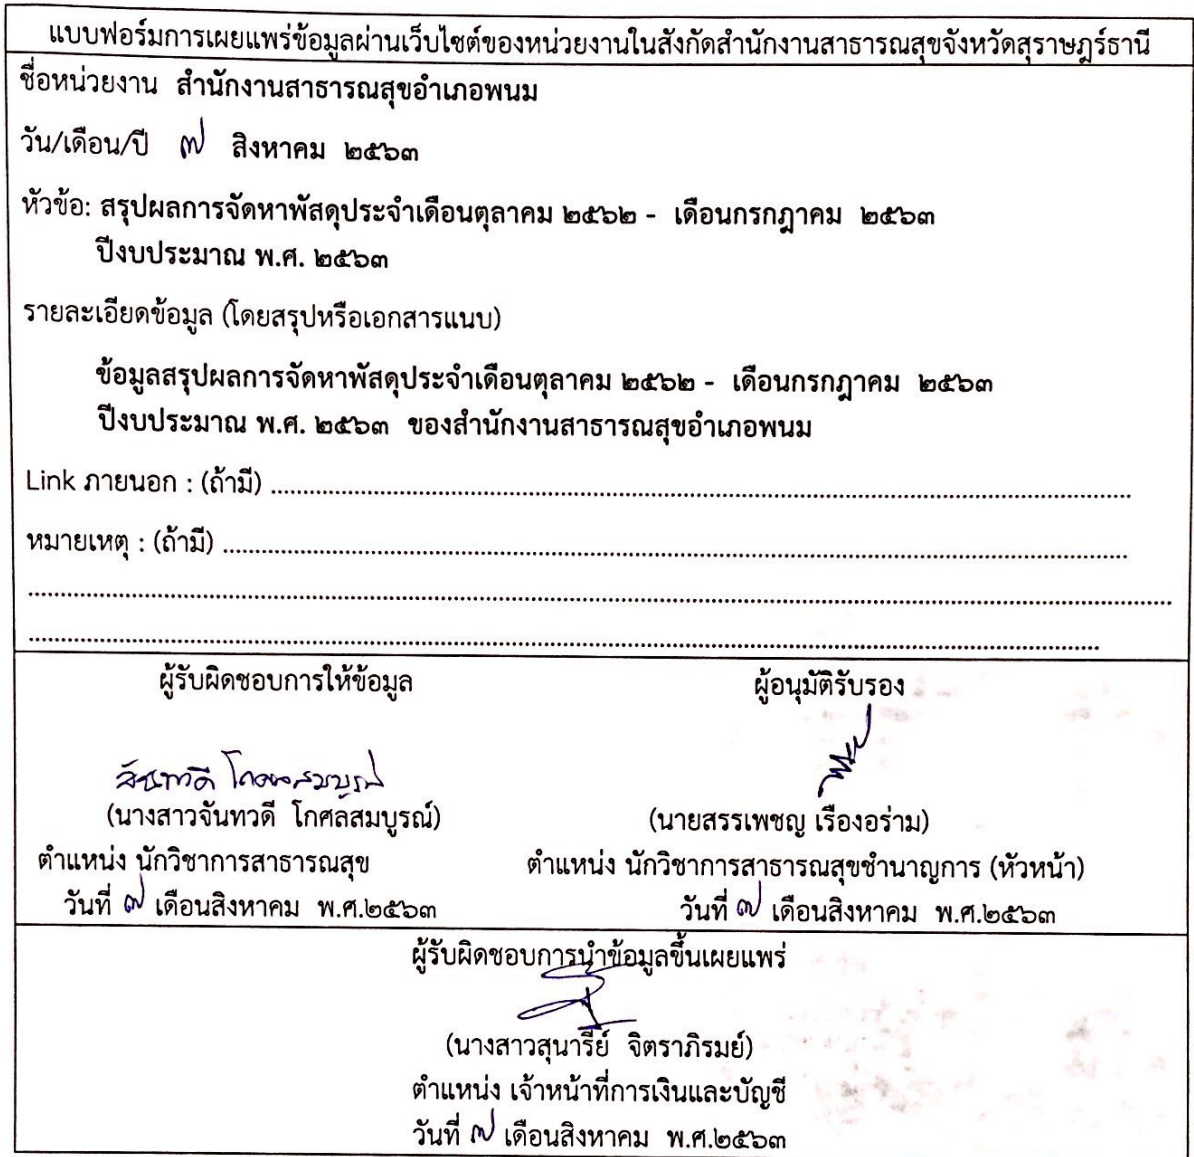 แบบฟอร์มการเผยแพร่ข้อมูลผ่านเว็บไซต์ของหน่วยงานในสังกัดสำนักงานสาธารณสุขจังหวัดสุราษฎร์ธานี
ชื่อหน่วยงาน สำนักงานสาธารณสุขอำเภอพนม
วัน/เดือน/ปี ๗ สิงหาคม ๒๕๖๓
หัวข้อ: สรุปผลการจัดหาพัสดุประจำเดือนตุลาคม ๒๕๖๒ - เดือนกรกฎาคม ๒๕๖๓
ปีงบประมาณ พ.ศ. ๒๕๖๓
รายละเอียดข้อมูล (โดยสรุปหรือเอกสารแนบ)
ข้อมูลสรุปผลการจัดหาพัสดุประจำเดือนตุลาคม ๒๕๖๒ - เดือนกรกฎาคม ๒๕๖๓
ปีงบประมาณ พ.ศ. ๒๕๖๓ ของสำนักงานสาธารณสุขอำเภอพนม
Link ภายนอก : (ถ้ามี) ........................................
หมายเหตุ : (ถ้ามี) ........................................
ผู้รับผิดชอบการให้ข้อมูล ผู้อนุมัติรับรอง
(นางสาวจันทวดี โกศลสมบูรณ์) (นายสรรเพชญ เรืองอร่าม)
ตำแหน่ง นักวิชาการสาธารณสุข ตำแหน่ง นักวิชาการสาธารณสุขชำนาญการ (หัวหน้า)
วันที่ ๗ เดือนสิงหาคม พ.ศ.๒๕๖๓ วันที่ ๗ เดือนสิงหาคม พ.ศ.๒๕๖๓
ผู้รับผิดชอบการนำข้อมูลขึ้นเผยแพร่
(นางสาวสุนารีย์ จิตราภิรมย์)
ตำแหน่ง เจ้าหน้าที่การเงินและบัญชี
วันที่ ๗ เดือนสิงหาคม พ.ศ.๒๕๖๓